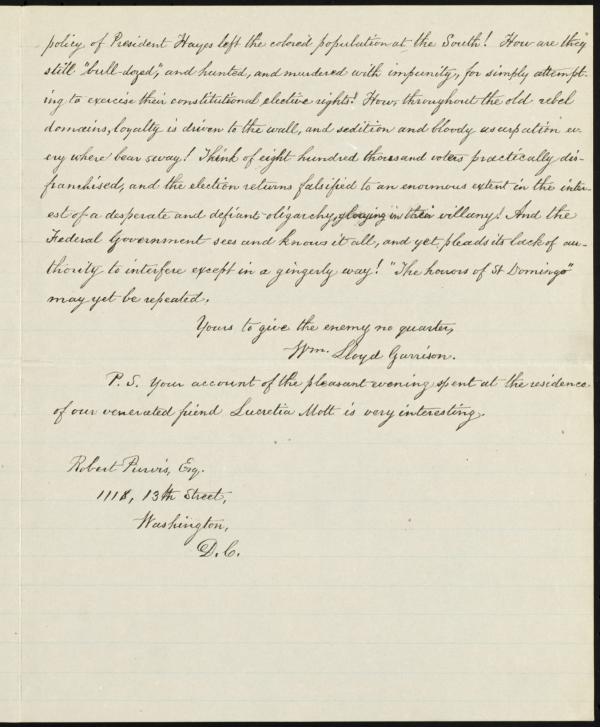 policy of President Hayes left the colored population at the South! How are they
still "bull-dozed," and hunted, and murdered with impunity, for simply attempt-
ing to exercise their constitutional elective rights! How, throughout the old rebel
domains, loyalty is driven to the wall, and sedition and bloody usurpation ev-
ery where bear sway! Think of eight hundred thousand voters practically dis-
franchised, and the election returns falsified to an enormous extent in the inter-
est of a desperate and defiant oligarchy, glorying in their villany! And the
Federal Government sees and knows it all, and yet pleads its lack of au-
thority to interfere except in a gingerly way! "The horrors of St Domingo"
may yet be repeated.
Yours to give the enemy no quarter,
Wm. Lloyd Garrison.
P. S. Your account of the pleasant evening spent at the residence
of our venerated friend Lucretia Mott is very interesting.
Robert Purvis, Esq.
1118, 13th Street,
Washington,
D. C.